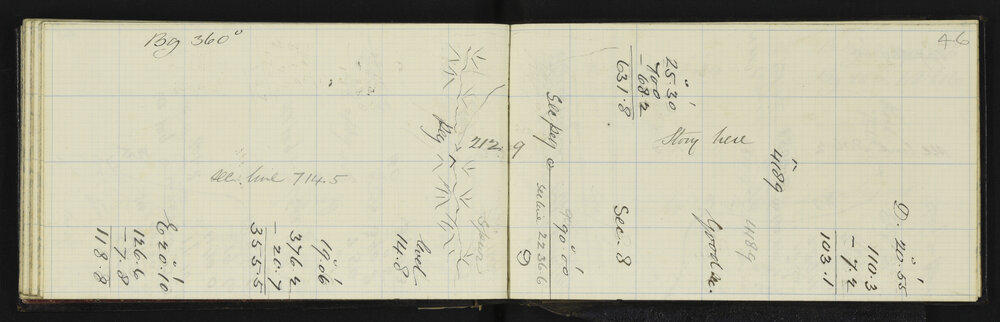 Bg 360°
sec. line 714.5
E 20° 10'
126.6
- 7.8
118.8
19° 06'
376.2
- 20.7
355.5
14.8
Peg
212.9
Spur
46
25° 30'
700
- 68.2
631.8
See peg
Story here
4189
4189
90° 00'
Sec. 8
Good n.
D. 20° 55'
110.3
- 7.2
103.1